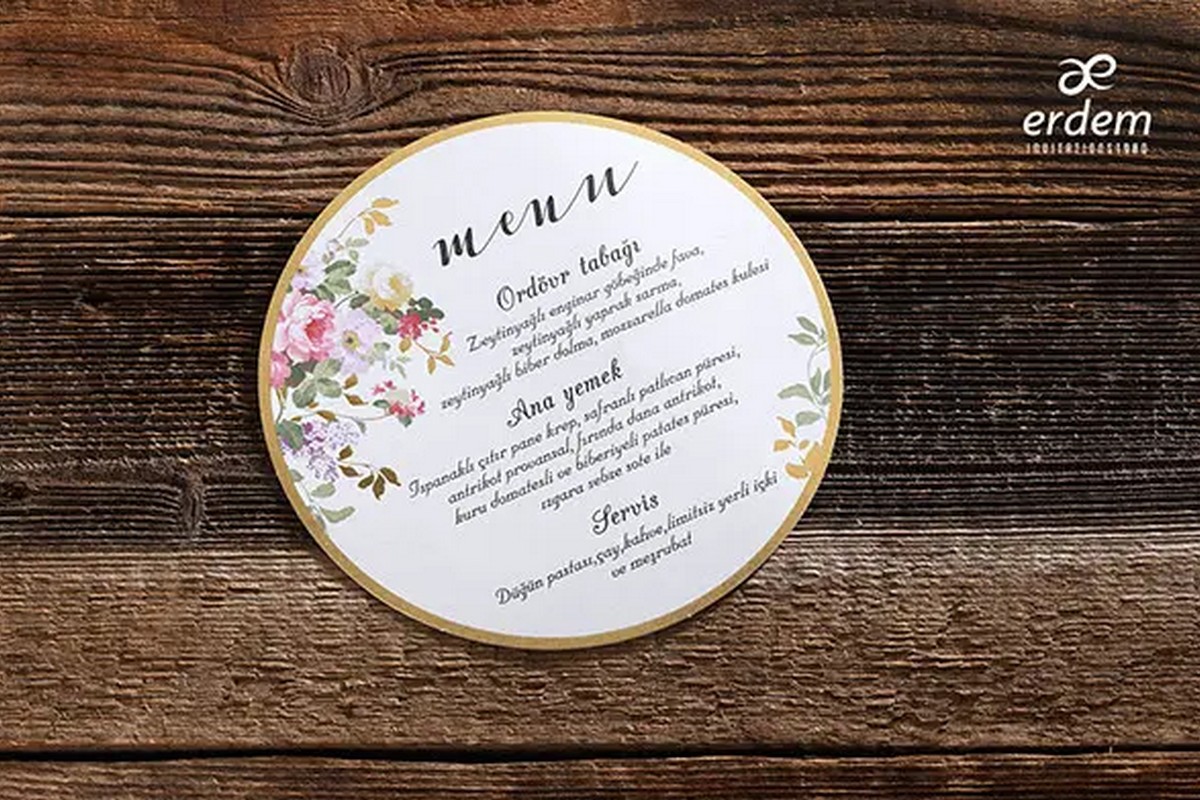 menu
Ordövr tabağı
Zeytinyağlı enginar göbeğinde fava,
zeytinyağlı yaprak sarma,
zeytinyağlı biber dolma, mozzarella domates kulesi
Ana yemek
Ispanaklı çıtır pane krep, safranlı patlıcan püresi,
antrikot provansal, fırında dana antrikot,
kuru domatesli ve biberiyeli patates püresi,
ızgara sebze sote ile
Servis
Düğün pastası,çay,kahve,limitsiz yerli içki
ve meşrubat
æ
erdem